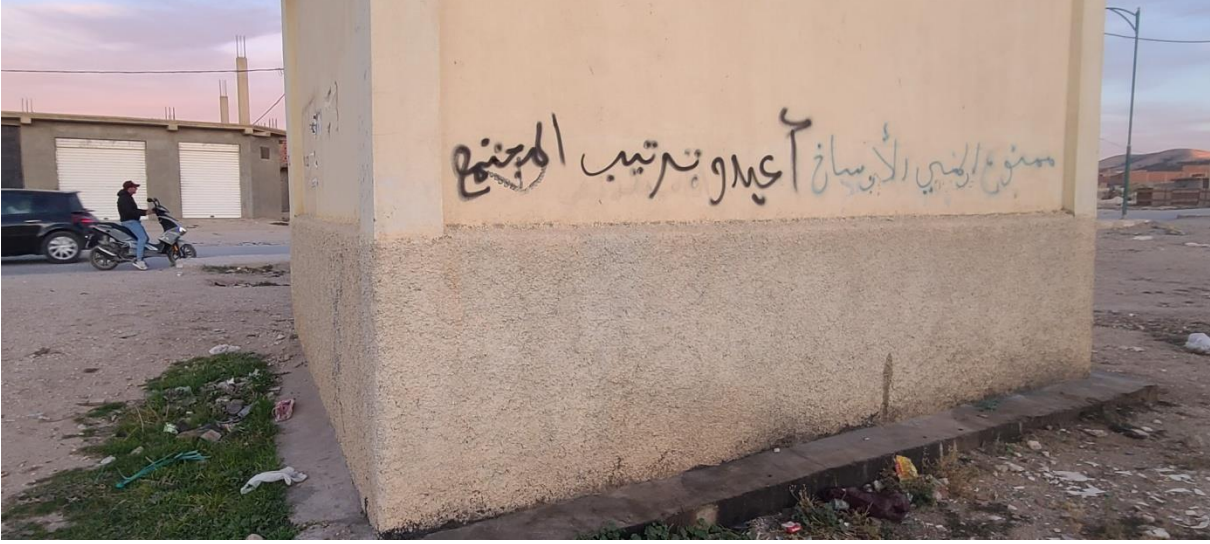 ممنوع الرمي الأوساخ
آعيدو ترتيب المجتمع